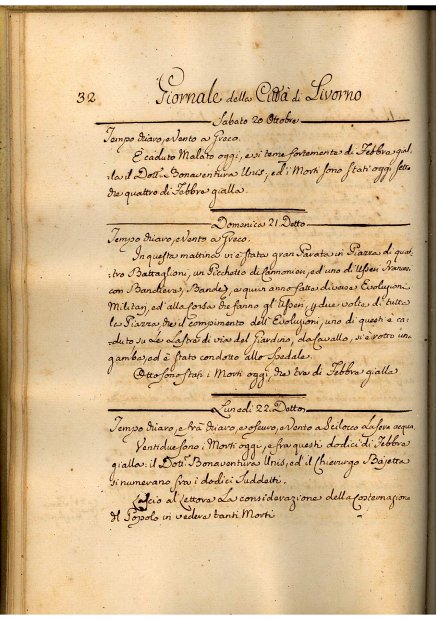 32 Giornale della Città di Livorno
Sabato 20 Ottobre
Tempo chiaro, e Vento a Greco.
E caduto Malato oggi, e si teme fortemente di Febbre gial-
la il Dott.r Bonaventura Unis, ed i Morti sono stati oggi sette
che quattro di Febbre gialla.
Domenica 21 Detto
Tempo chiaro, e Vento a Greco.
In questa mattina vi è stata gran Parata in Piazza di quat-
tro Battaglioni, un Picchetto di Cannonieri, ed uno di Usseri
con Bandiere, Bande, e quivi anno fatte diverse Evoluzioni
Militari, ed alla Corsa che fanno gl'Usseri, p due volte di tutta
la Piazza, che il compimento dell'Evoluzioni, uno di questi è ca-
duto su le Lastre di via del Giardino, da Cavallo, si è rotto un
gamba, ed è stato condotto allo Spedale.
Otto sono stati i Morti oggi, che tre di Febbre gialla
Lunedi 22. Detto
Tempo chiaro, e frà chiaro, e oscuro, e Vento a Scilocco La sera acqua
Ventidue sono i Morti oggi, e fra questi dodici di Febbre
gialla: il Dott.r Bonaventura Unis, ed il Chirurgo Bajetta
si numerano fra i dodici suddetti.
Lascio al Lettore La considerazione della Costernazione
del Popolo in vedere tanti Morti